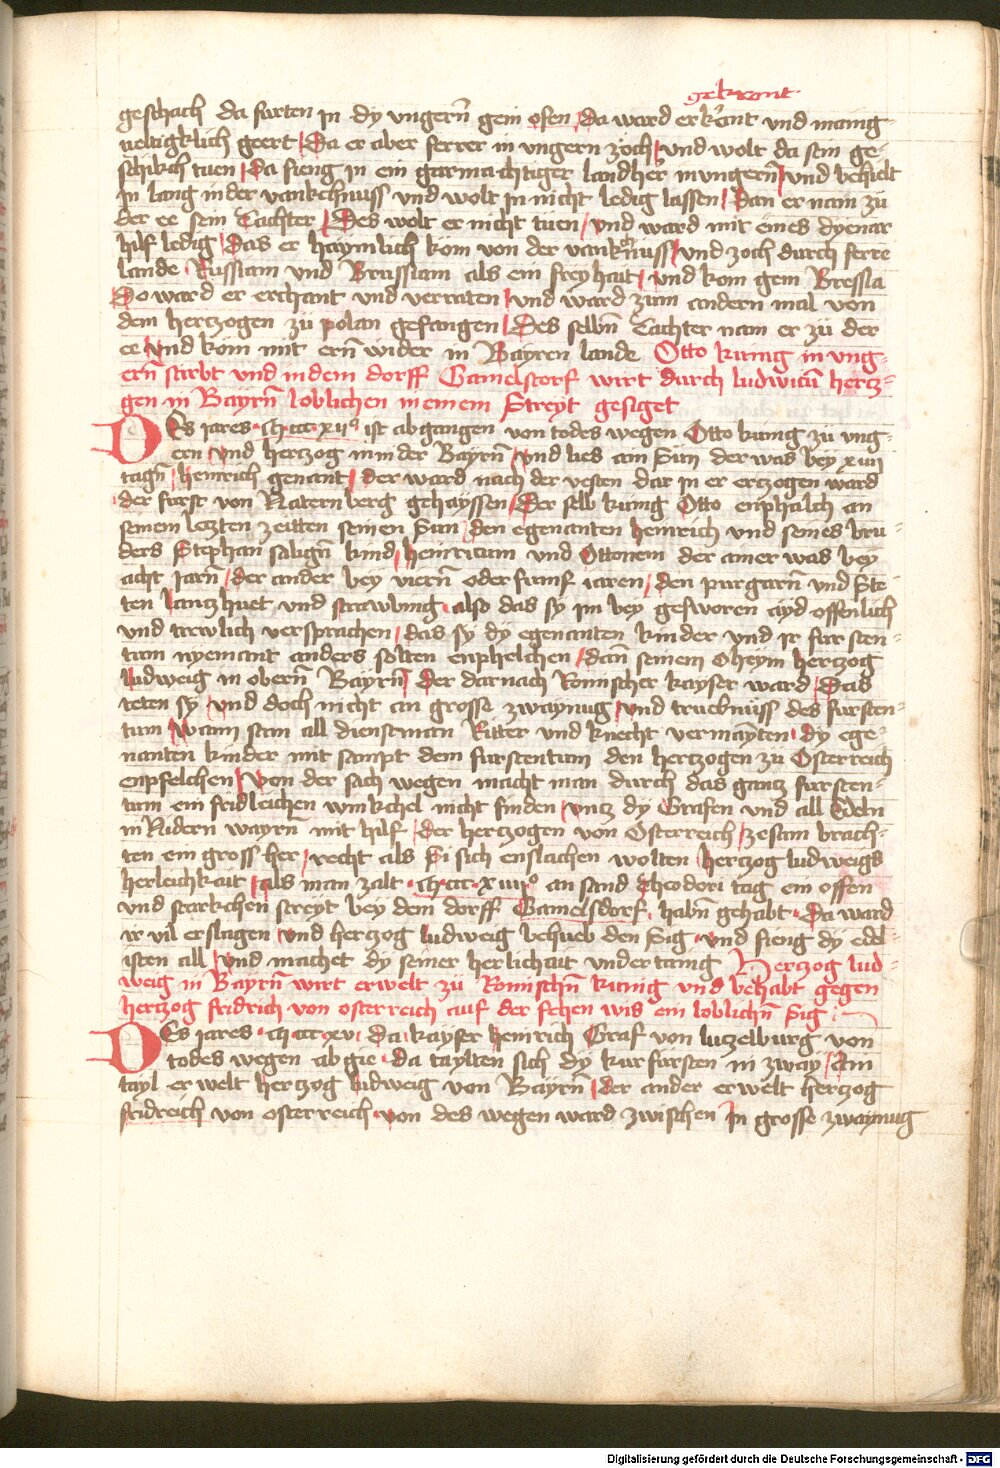 gekront
geschach da furten in dy vngern̄ gein ofen / Da ward er kront vnd manig-
ueltigklich geert / Da er aber ferrer in vngern zoch / vnd wolt da sein ge-
schikch tuen / Da fieng in ein gar machtiger landher in vngern̄ / vnd behielt
in lang in der vankchnuss vnd wolt in nicht ledig lassen / Dan er nam zu
der ee sein Tachter / Des wolt er nicht tuen / vnd ward mit eines dyenar
hilf ledig / Das er haymlich kom von der vanknuss / vnd zoch durch ferre
lande Russiam vnd Brussiam als ein freyhait / vnd kom gein Bressla
Do ward er erchant vnd verraten / vnd ward zum andern mal von
dem hertzogen zu polan gefangen / Des selbn̄ Tachter nam er zu der
ee vnd kom mit ern̄ wider in Bayren lande Otto kunig in vng-
ern̄ stirbt vnd in dem dorff Gamelstorf wirt durch ludwicū hertz-
gen in Bayrn̄ loblichen in einem Streyt gesiget
DEs iares · m ccc xii° ist abgangen von todes wegen Otto kunig zu vng-
ern vnd hertzog in nider Bayrn̄ / vnd lies ain Sun der was bey xiiii
tagn̄ / heinrich genant / der ward nach der vesten dar in er ertzogen ward
der furst von Naternberg gehayssen / Der selb kunig Otto enphalch an
seinem letzten zeitten seinen Sun / den egenanten heinrich vnd seines bru-
ders Stephan salign̄ kind / heinricum vnd Ottonem der ainer was bey
acht iarn̄ / der ander bey viern̄ oder funf iaren / den purgarn̄ vnd Ste-
ten lantzhuet vnd strawbing / also das sy im bey gesworen ayd offenlich
vnd trewlich versprachen / das sy dy egenanten kinder vnd ir fursten-
tum nyemant anders solten enphelchen / dan̄ seinem Oheym hertzog
ludweig in obern̄ Bayrn̄ / Der darnach Romischer kayser ward / Das
teten sy vnd doch nicht an grosse zwaynug / vnd truebnuss des fursten-
tum / Wann stan all dienstman Ritter vnd knecht vermaynten / dy ege-
nanten kinder mit sampt dem furstentum den hertzogen zu Osterreich
enpfelchen / Von der sach wegen macht man durch das gantz fursten-
tum ein fridleichen winkchel nicht finden / vntz dy Grafen vnd all Edeln
in Nidern wayrn̄ mit hilf der hertzogen von Osterreich / zesam brach-
ten ein gross her / recht als si sich enslachen wolten hertzog ludweigs
herleichkait / als man zalt · m ccc xiii° an sand Theodori tag ein offen
vnd starkchen streyt bey dem dorff Gamelsdorf / habn̄ gehabt · Da ward
ir vil erslagen vnd hertzog ludweig behueb den Sig / vnd fieng dy edl-
isten all / vnd machet dy seiner herlichait vndertanig Hertzog lud-
weig in Bayrn̄ wirt erwelt zu Romischn̄ kunig vnd behabt gegen
hertzog fridrich von osterreich auf der fehen wis ein loblichn̄ Sig
DEs iares · m ccc xv · Da kayser heinrich Graf von lutzelburg von
todes wegen abgie · da taylten sich dy kurfursten in zway / Ain
tayl erwelt hertzog ludweig von Bayrn̄ / der ander erwelt hertzog
fridreich von osterreich von des wegen ward zwischen in grosse zwaynug
Digitalisierung gefördert durch die Deutsche Forschungsgemeinschaft - DFG